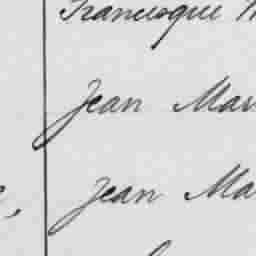 Francisque
Jean Mar
Jean Ma